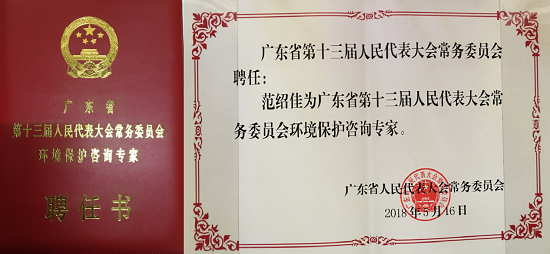 广东省
第十三届人民代表大会常务委员会
环境保护咨询专家
聘任书
广东省第十三届人民代表大会常务委员会
聘任：
范绍佳为广东省第十三届人民代表大会常
务委员会环境保护咨询专家。
广东省人民代表大会常务委员会
2018年5月16日